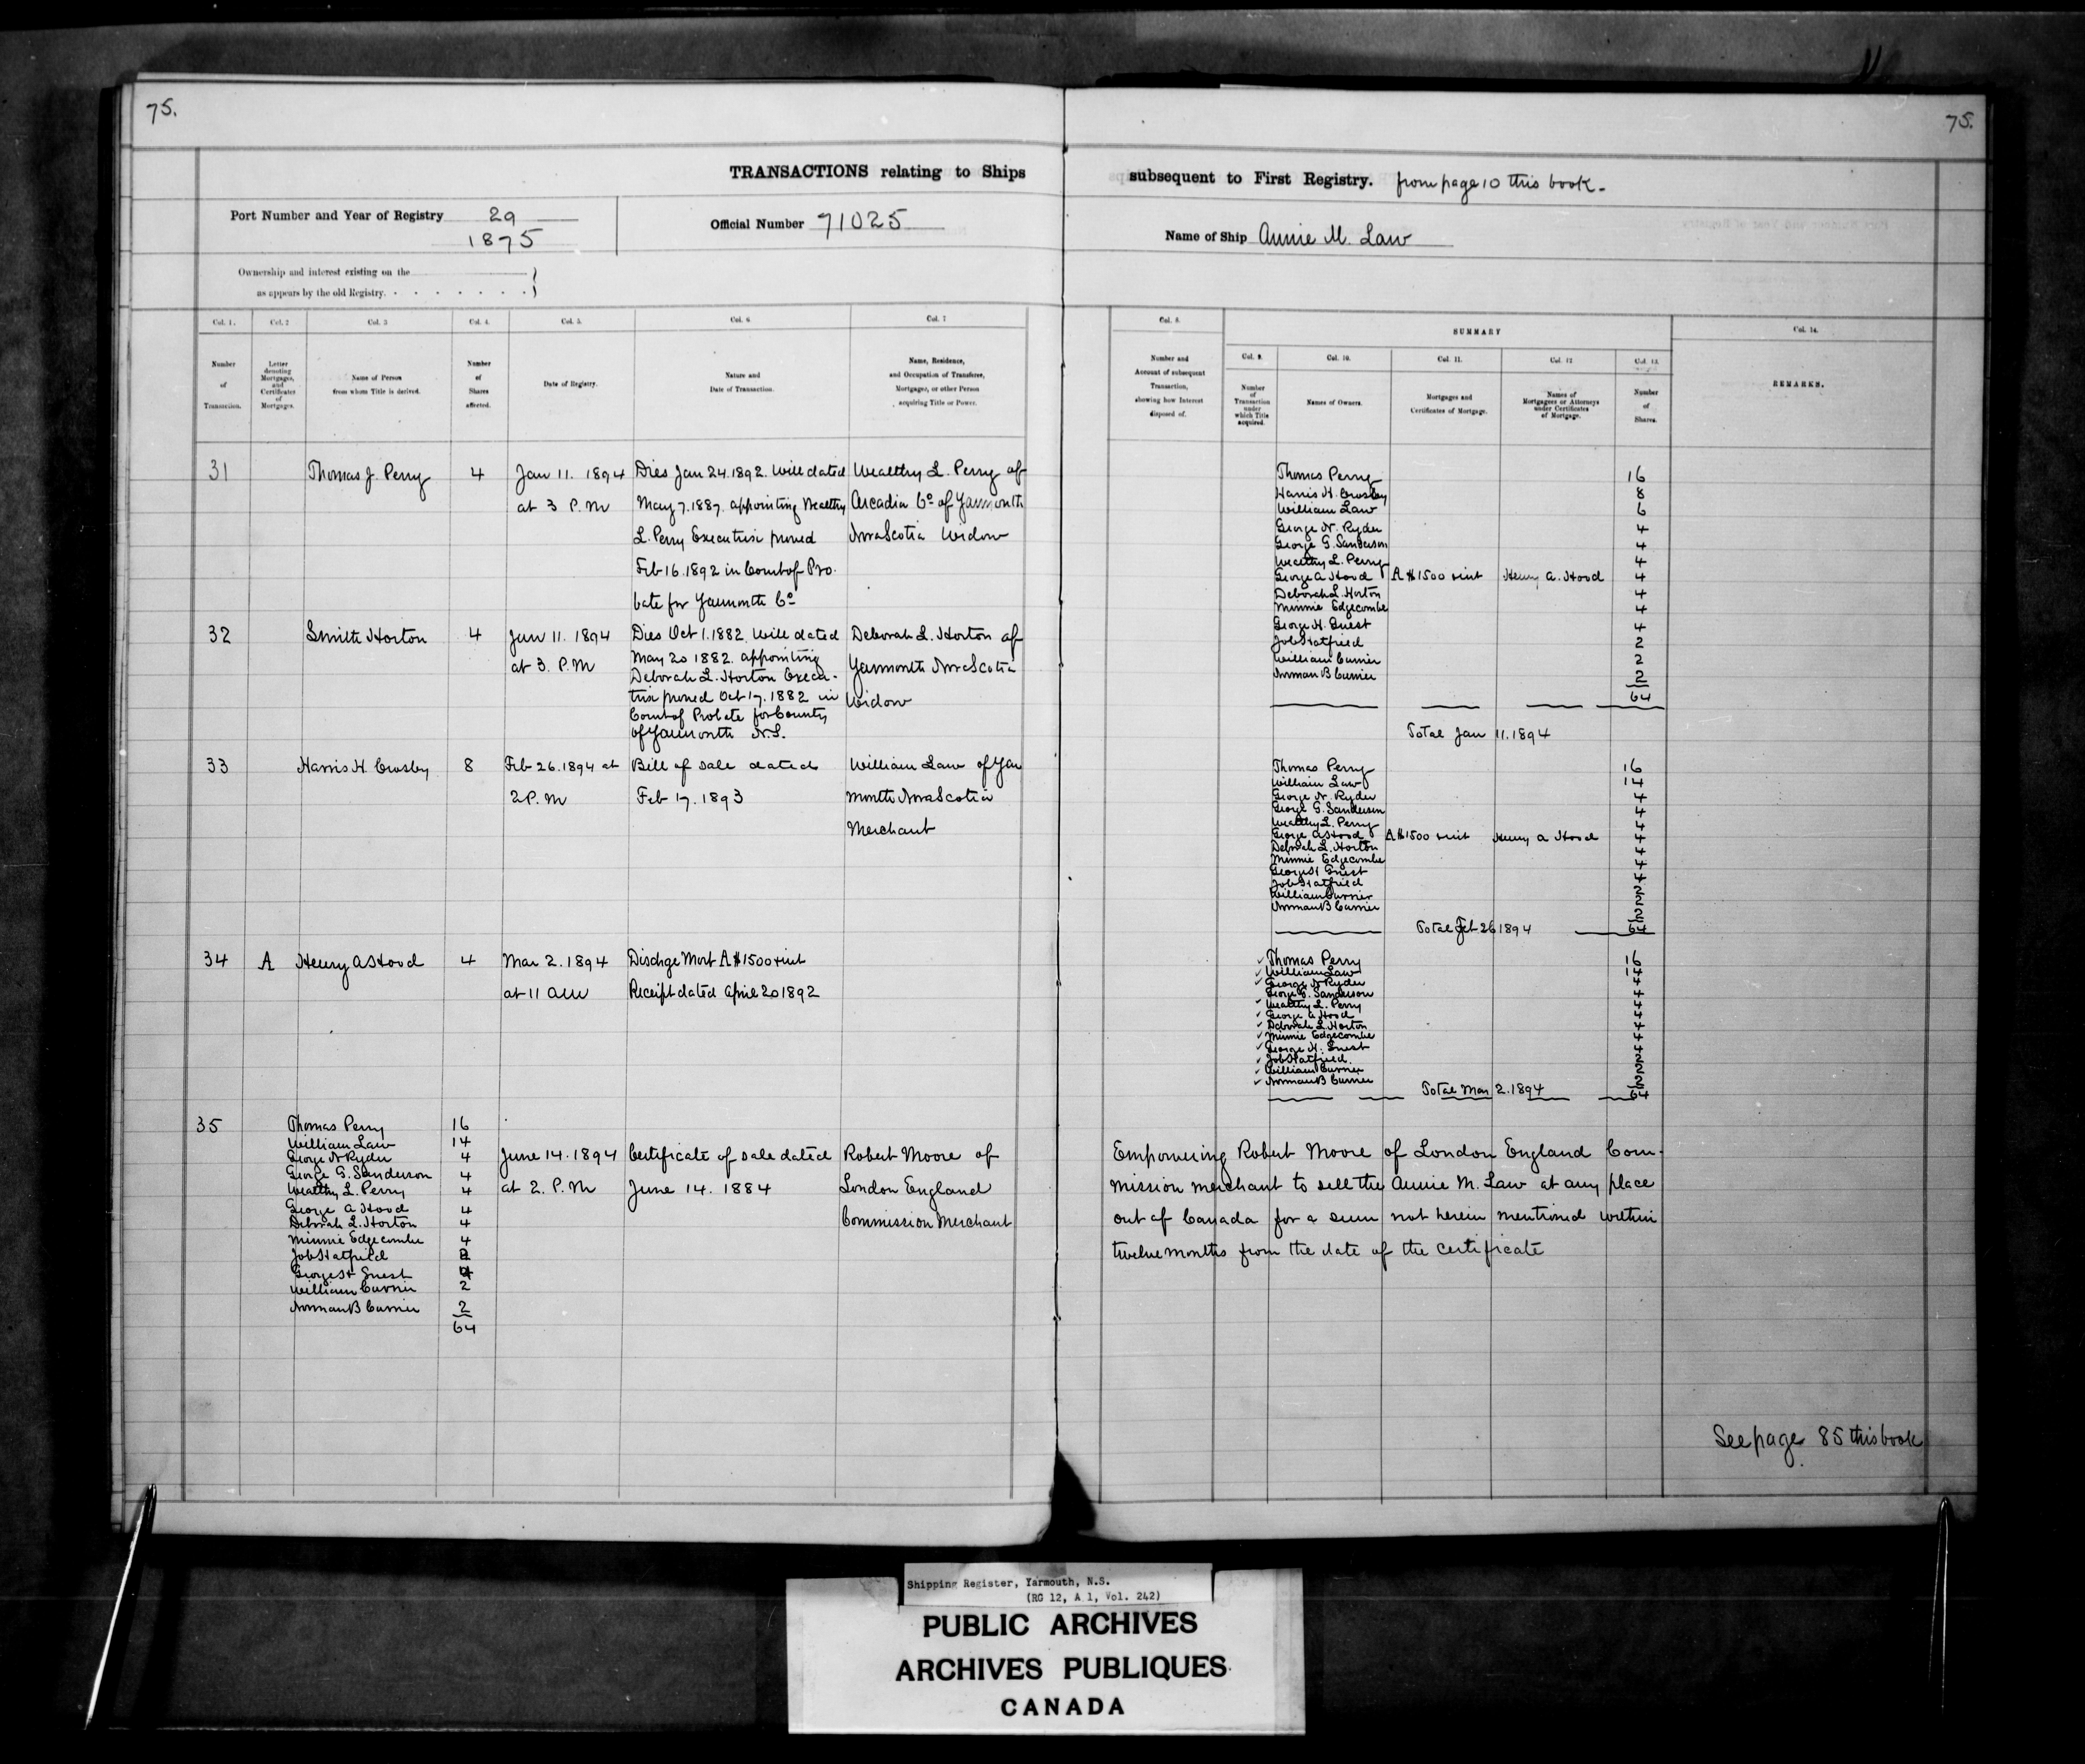 75.
75.
TRANSACTIONS relating to Ships subsequent to First Registry. from page 10 this book.
Port Number and Year of Registry 29
1875
Official Number 71025
Name of Ship Annie M. Law
Ownership and interest existing on the
as appears by the old Registry.
Col. 1.
Col. 2
Col. 3
Col. 4.
Col. 5.
Col. 6.
Col. 7
Col. 8.
SUMMARY
Col. 14.
Col. 9.
Col. 10.
Col. 11.
Col. 12
Col. 13.
Number
of
Transaction.
Letter
denoting
Mortgages,
and
Certificates
of
Mortgages.
Name of Person
from whom Title is derived.
Number
of
Shares
affected.
Date of Registry.
Nature and
Date of Transaction.
Name, Residence,
and Occupation of Transferee,
Mortgagee, or other Person
acquiring Title or Power.
Number and
Account of subsequent
Transaction,
showing how Interest
disposed of.
Number
of
Transaction
under
which Title
acquired.
Names of Owners.
Mortgages and
Certificates of Mortgage.
Names of
Mortgagees or Attorneys
under Certificates
of Mortgage.
Number
of
Shares.
REMARKS.
31
Thomas J. Perry
4
Jan 11. 1894
at 3 P.M
Dies Jan 24.1892. Will dated
May 7.1887. appointing Wealthy
L. Perry Executrix proved
Feb 16.1892 in Court of Pro.
bate for Yarmouth Co
Wealthy L. Perry of
Arcadia Co of Yarmouth
Nova Scotia Widow
Thomas Perry 16
Harris H. Crosby 8
William Law 6
George N. Ryder 4
George G. Sanderson 4
Wealthy L. Perry 4
George A Hood A $1500 + int Henry A. Hood 4
Deborah L. Horton 4
Minnie Edgecombe 4
George H. Guest 4
Job Hatfield 2
William Currier 2
Norman B Currier 2
64
Total Jan 11.1894
32
Smith Horton
4
Jan 11. 1894
at 3. P.M
Dies Oct 1.1882. Will dated
May 20 1882. appointing
Deborah L. Horton Execu-
trix proved Oct 17.1882 in
Court of Probate for County
of Yarmouth N.S.
Deborah L. Horton of
Yarmouth Nova Scotia
Widow
33
Harris H. Crosby
8
Feb 26.1894 at
2 P.M
Bill of Sale dated
Feb 17.1893
William Law of Yar
mouth Nova Scotia
Merchant
Thomas Perry 16
William Law 14
George N. Ryder 4
George G. Sanderson 4
Wealthy L. Perry 4
George A Hood A $1500 + int Henry A Hood 4
Deborah L. Horton 4
Minnie Edgecombe 4
George H Guest 4
Job Hatfield 2
William Currier 2
Norman B Currier 2
Total Feb 26 1894 64
34
A
Henry A Hood
4
Mar 2.1894
at 11 AM
Dischge Mort A $1500 + int
Receipt dated April 20 1892
Thomas Perry 16
William Law 14
George N Ryder 4
George G. Sanderson 4
Wealthy L. Perry 4
George A Hood 4
Deborah L Horton 4
Minnie Edgecombe 4
George H. Guest 4
Job Hatfield. 2
William Currier 2
Norman B Currier 2
Total Mar 2.1894 64
35
Thomas Perry 16
William Law 14
George N Ryder 4
George G. Sanderson 4
Wealthy L. Perry 4
George A Hood 4
Deborah L. Horton 4
Minnie Edgecombe 4
Job Hatfield 2
George H Guest 4
William Currier 2
Norman B Currier 2
64
June 14.1894
at 2. P.M
Certificate of Sale dated
June 14. 1884
Robert Moore of
London England
Commission Merchant
Empowering Robert Moore of London England Com-
mission merchant to sell the Annie M. Law at any place
out of Canada for a sum not herein mentioned within
twelve months from the date of the certificate
See page 85 this book
Shipping Register, Yarmouth, N.S.
(RG 12, A 1, Vol. 242)
PUBLIC ARCHIVES
ARCHIVES PUBLIQUES
CANADA